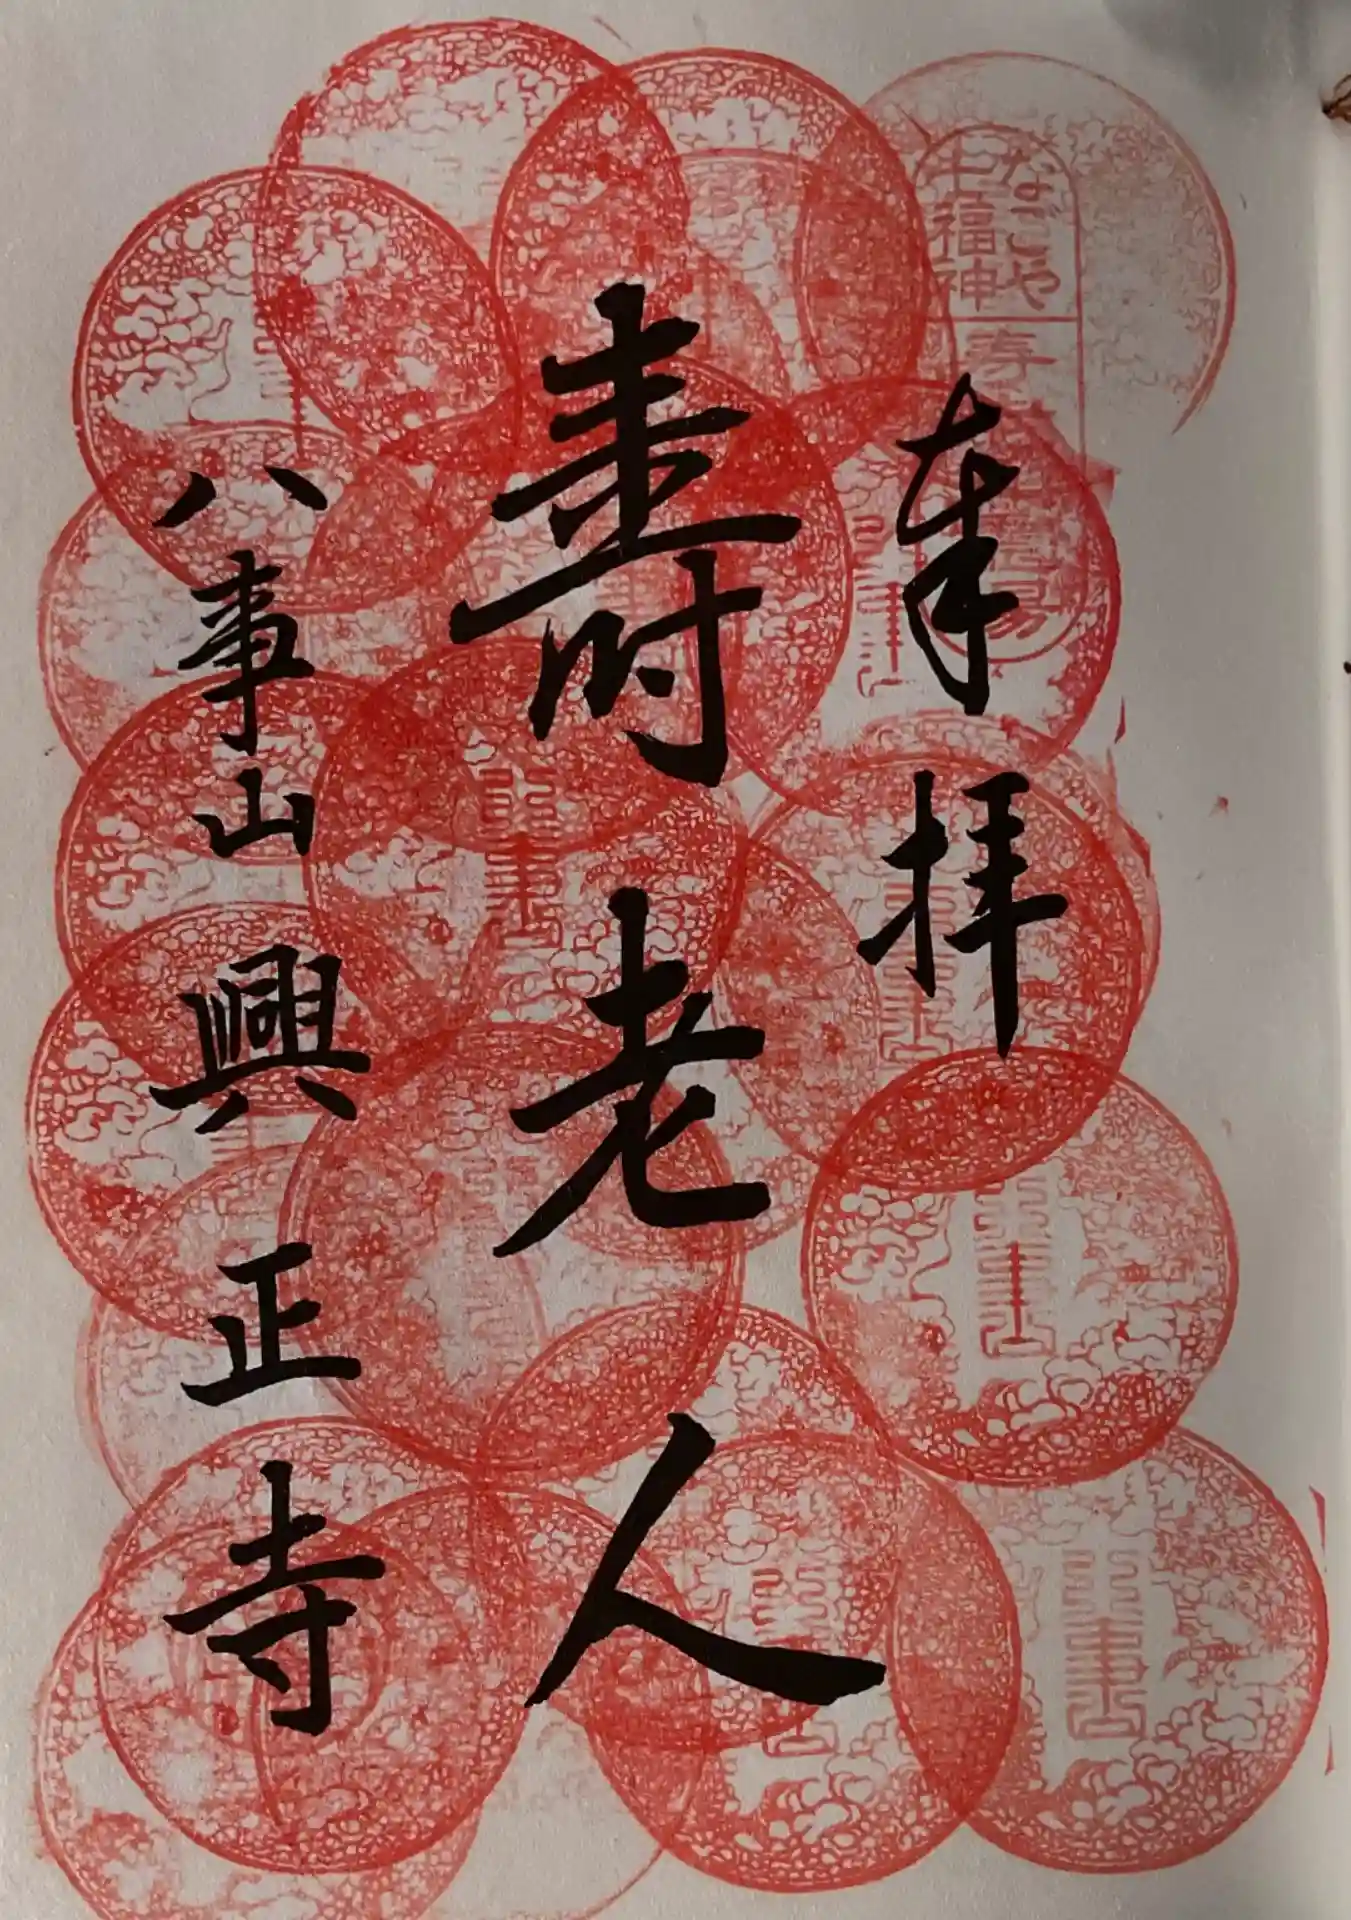 奉拝
寿老人
八事山興正寺
なごや
七福神